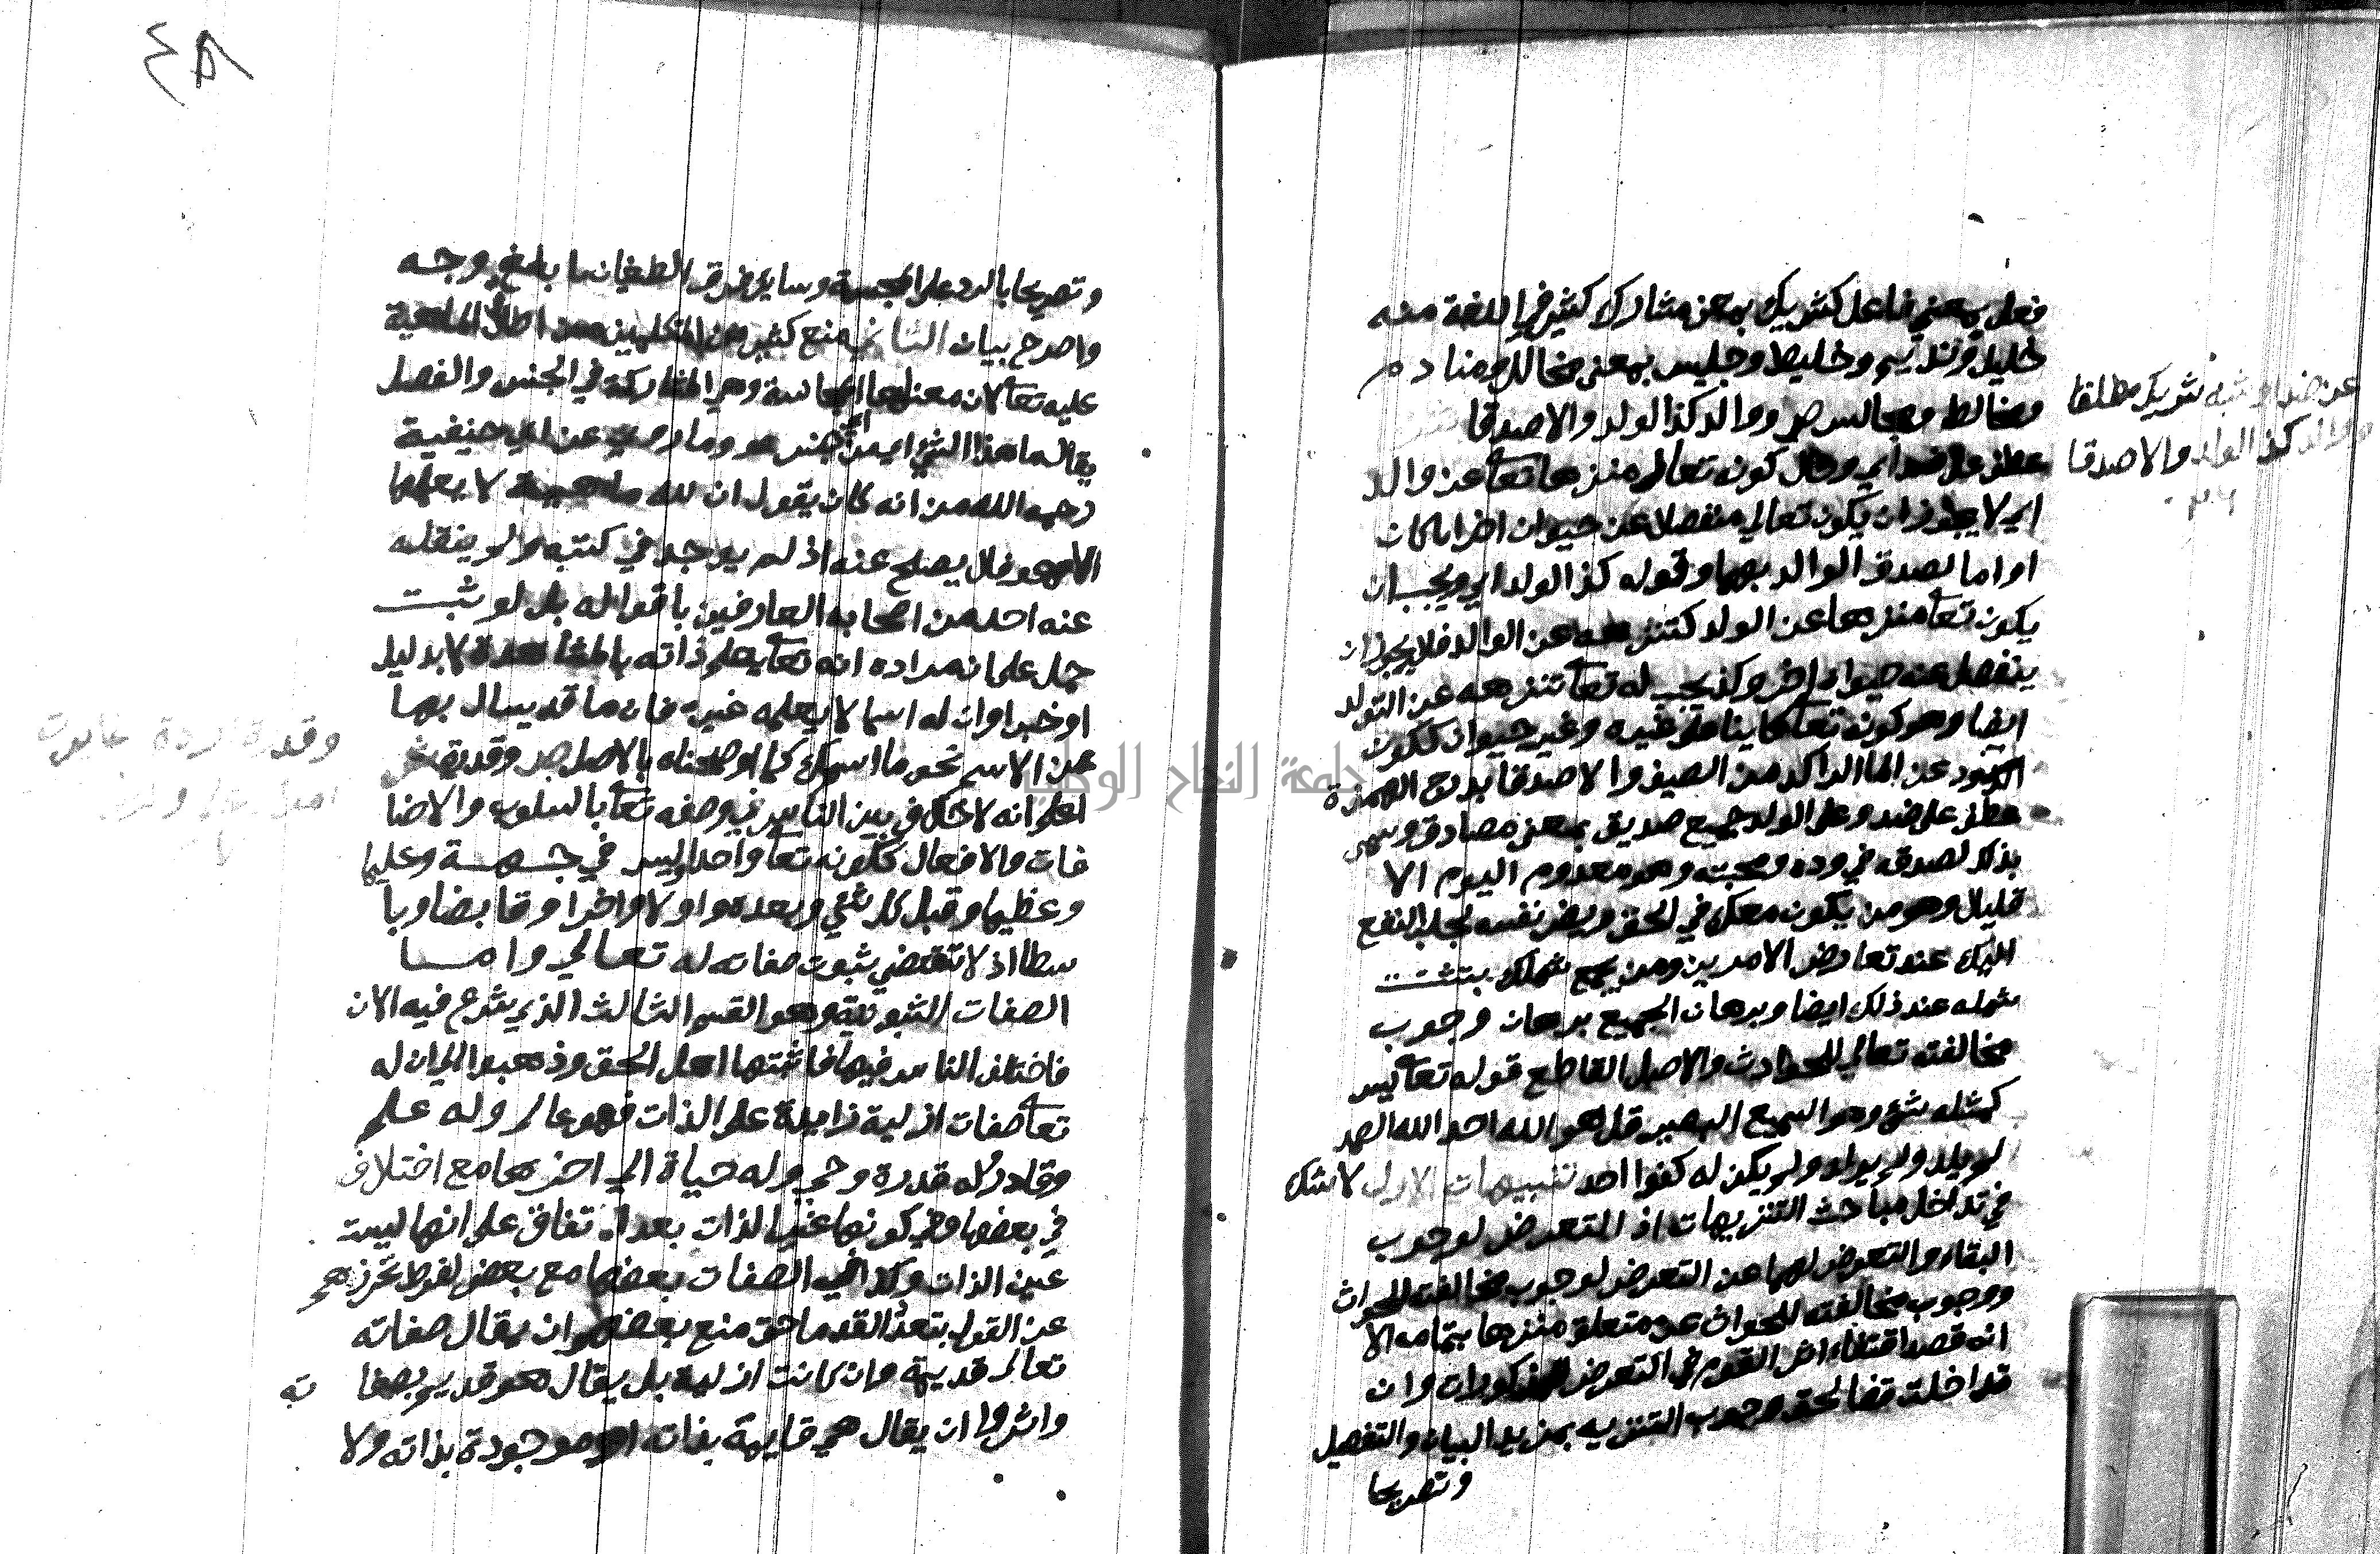 فعيل بمعني فاعل كشريك بمعني مشارك كثير في اللغة منه
خليل ونديم وخليط وجليس بمعني مخالل ومنادم
ومخالط ومجالس ص ووالد كذا الولد والاصدقا
عطف علي ضد اي وحال كون تعالى منزها تعا عن والد
اي لا يجوز ان يكون تعالي منفصلا عن حيوان اخر ابا كان
او اما لصدق الوالد بهما وقوله كذا الولد اي ويجب ان
يكون تعا منزها عن الولد كتنزهه عن الوالد فلا يجوز ان
ينفصل عنه حيوان اخر وكذ يجب له تعا تنزهه عن التولد
ايضا وهو كونه تعا كاينا من غيره وغير حيوان ككون
الدود عن الما الراكد من الصيف والاصدقا بدرج الهمزة
عطف علي ضد وعلي الولد جميع صديق بمعني مصادق وسمي
بذلك لصدقه في وده ومحبته وهو معدوم اليوم الا
قليل وهو من يكون معك في الحق ويضر نفسه لجلب النفع
اليك عند تعارض الامرين ومن يجمع شملك بتشت
شمله عند ذلك ايضا وبرهان الجميع برهان وجوب
مخالفته تعالي للحوادث والاصل القاطع قوله تعا ليس
كمثله شي وهو السميع البصير قل هو الله احد الله الصمد
لم يلد ولم يولد ولم يكن له كفوا احد تنبيهات الاول لا شك
في تداخل مباحث التنزيهات اذ التعرض لوجوب
البقاء والتعرض لهما عن التعرض لوجوب مخالفت للحوادث
ووجوب مخالفته للحوادث عن متعلق منزها بتمامه الا
انه قصد اقتفاء اثر القوم في التعرض للمذكورات وان
تداخلت قضا لحق وجوب التنزيه بمزيد البيان والتفصيل
وتصريحا
عن ضد او شبه شريك مطلقا
ووالد كذا الولد والاصدقا
٤٨
وتصريحا بالرد علي المجسمة وساير فرق الطغيان بابلغ وجه
واصرح بيان الثاني منع كثير من المتكلمين من اطلاق الماهية
عليه تعا لان معناها المجانسة وهي المشاركة في الجنس والفصل
يقال ما هذا الشي اي من اي جنس هو وما روي عن ابي حنيفية
رحمه الله من انه كان يقول ان لله ماهية لا يعلمها
الا هو فلا يصلح عنه اذ لم يوجد في كتبه ولم ينقله
عنه احد من اصحابه العارفين باقواله بل لو ثبت
حمل علي ان مراده انه تعا يعلم ذاته بالمشاهدة لا بدليل
او خبر او ان له اسما لا يعلمه غيره فان ما قد يسال بها
عن الاسم نحو ما اسمك كما اوضحناه بالاصل ص وقدرة
اعلم انه لا خلاف بين الناس في وصفه تعا بالسلوب والاضا
فات والافعال ككونه تعا واحدا وليس في جهة وعليا
وعظيما وقبل كل شي وبعده واولا واخرا وقابضا وبا
سطا اذ لا تقتضي ثبوت صفاته له تعالي واما
الصفات الثبوتية وهو القسم الثالث الذي يشرع فيه الان
فاختلف الناس فيها فاثبتها اهل الحق وذهبوا الي ان له
تعا صفات ازلية زايدة على الذات فهو عالم وله علم
وقادر وله قدرة وحي وله حياة الي اخرها مع اختلاف
في بعضها وفي كونها غير الذات بعد الاتفاق على انها ليست
عين الذات وكذا في الصفات بعضها مع بعض لفرط تحرزهم
عن القول بتعدد القدما حتي منع بعضهم ان يقال صفاته
تعالى قديمة وان كانت ازلية بل يقال هو قديم بصفا ته
واثروا ان يقال هي قايمة بذاته او موجودة بذاته ولا
جامعة النجاح الوطنية